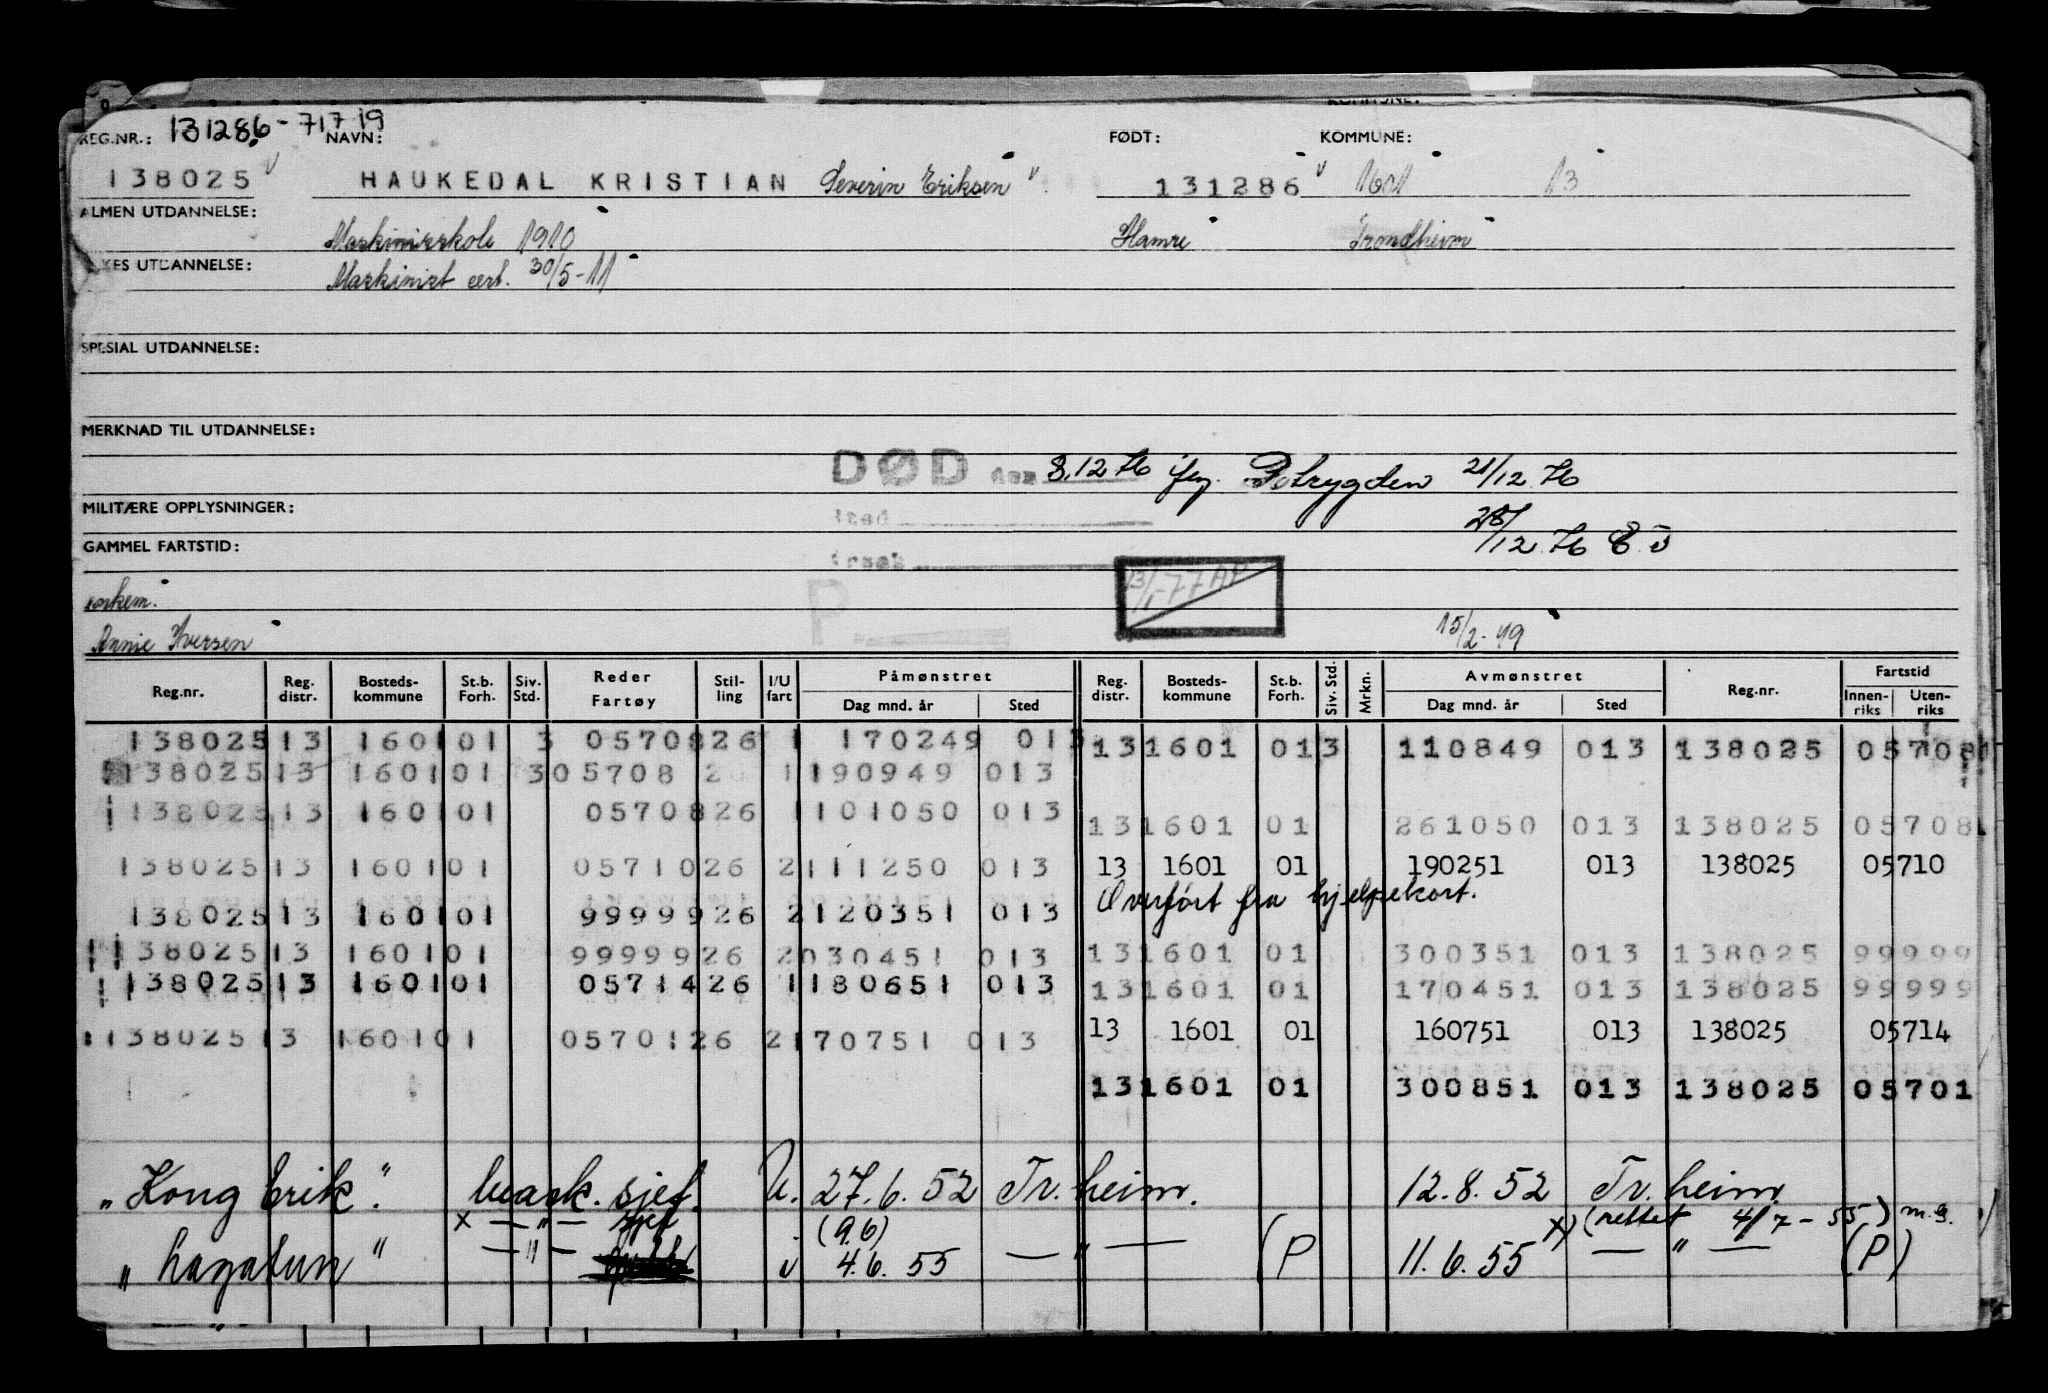 REG.NR.: 131286-71719 NAVN: FØDT: KOMMUNE:
138025 HAUKEDAL KRISTIAN Severin Eriksen 131286 1601 13
ALMEN UTDANNELSE:
Maskinistskole 1910 Hamre Trondheim
UTDANNELSE:
Maskinist cert. 30/5-11
SPESIAL UTDANNELSE:
MERKNAD TIL UTDANNELSE:
DØD den 8.12.76 21/12.76
MILITÆRE OPPLYSNINGER:
sted 28/12.76
GAMMEL FARTSTID:
årsak
13/1-77 AP
P
Annie Iversen 15/2-49
Reg.nr. Reg. distr. Bosteds-kommune St.b. Forh. Siv. Std. Reder Fartøy Stil-ling I/U fart Påmønstret Dag mnd. år Sted Reg. distr. Bosteds-kommune St.b. Forh. Siv. Std. Mrkn. Avmønstret Dag mnd. år Sted Reg.nr. Fartstid Innen-riks Uten-riks
138025 13 1601 01 3 05708 26 1 170249 013 13 1601 01 3 110849 013 138025 05708
138025 13 1601 01 3 05708 1 190949 013
138025 13 1601 01 05708 26 1 101050 013 13 1601 01 261050 013 138025 05708
138025 13 1601 01 05710 26 2 111250 013 13 1601 01 190251 013 138025 05710
138025 13 1601 01 99999 26 2 120351 013 Overført fra hjelpekort.
138025 13 1601 01 99999 26 2 030451 013 13 1601 01 300351 013 138025 99999
138025 13 1601 01 05714 26 1 180651 013 13 1601 01 170451 013 138025 99999
138025 13 1601 01 05701 26 2 170751 013 13 1601 01 160751 013 138025 05714
13 1601 01 300851 013 138025 05701
"Kong Erik". mask. sjef. U. 27.6.52 Tr.heim. 12.8.52 Tr.heim.
x — " — sjef (9.6) x) (rettet 4/7-55)
"Lagatun" — " — 4.6.55 — " — (P 11.6.55 — " — (P)